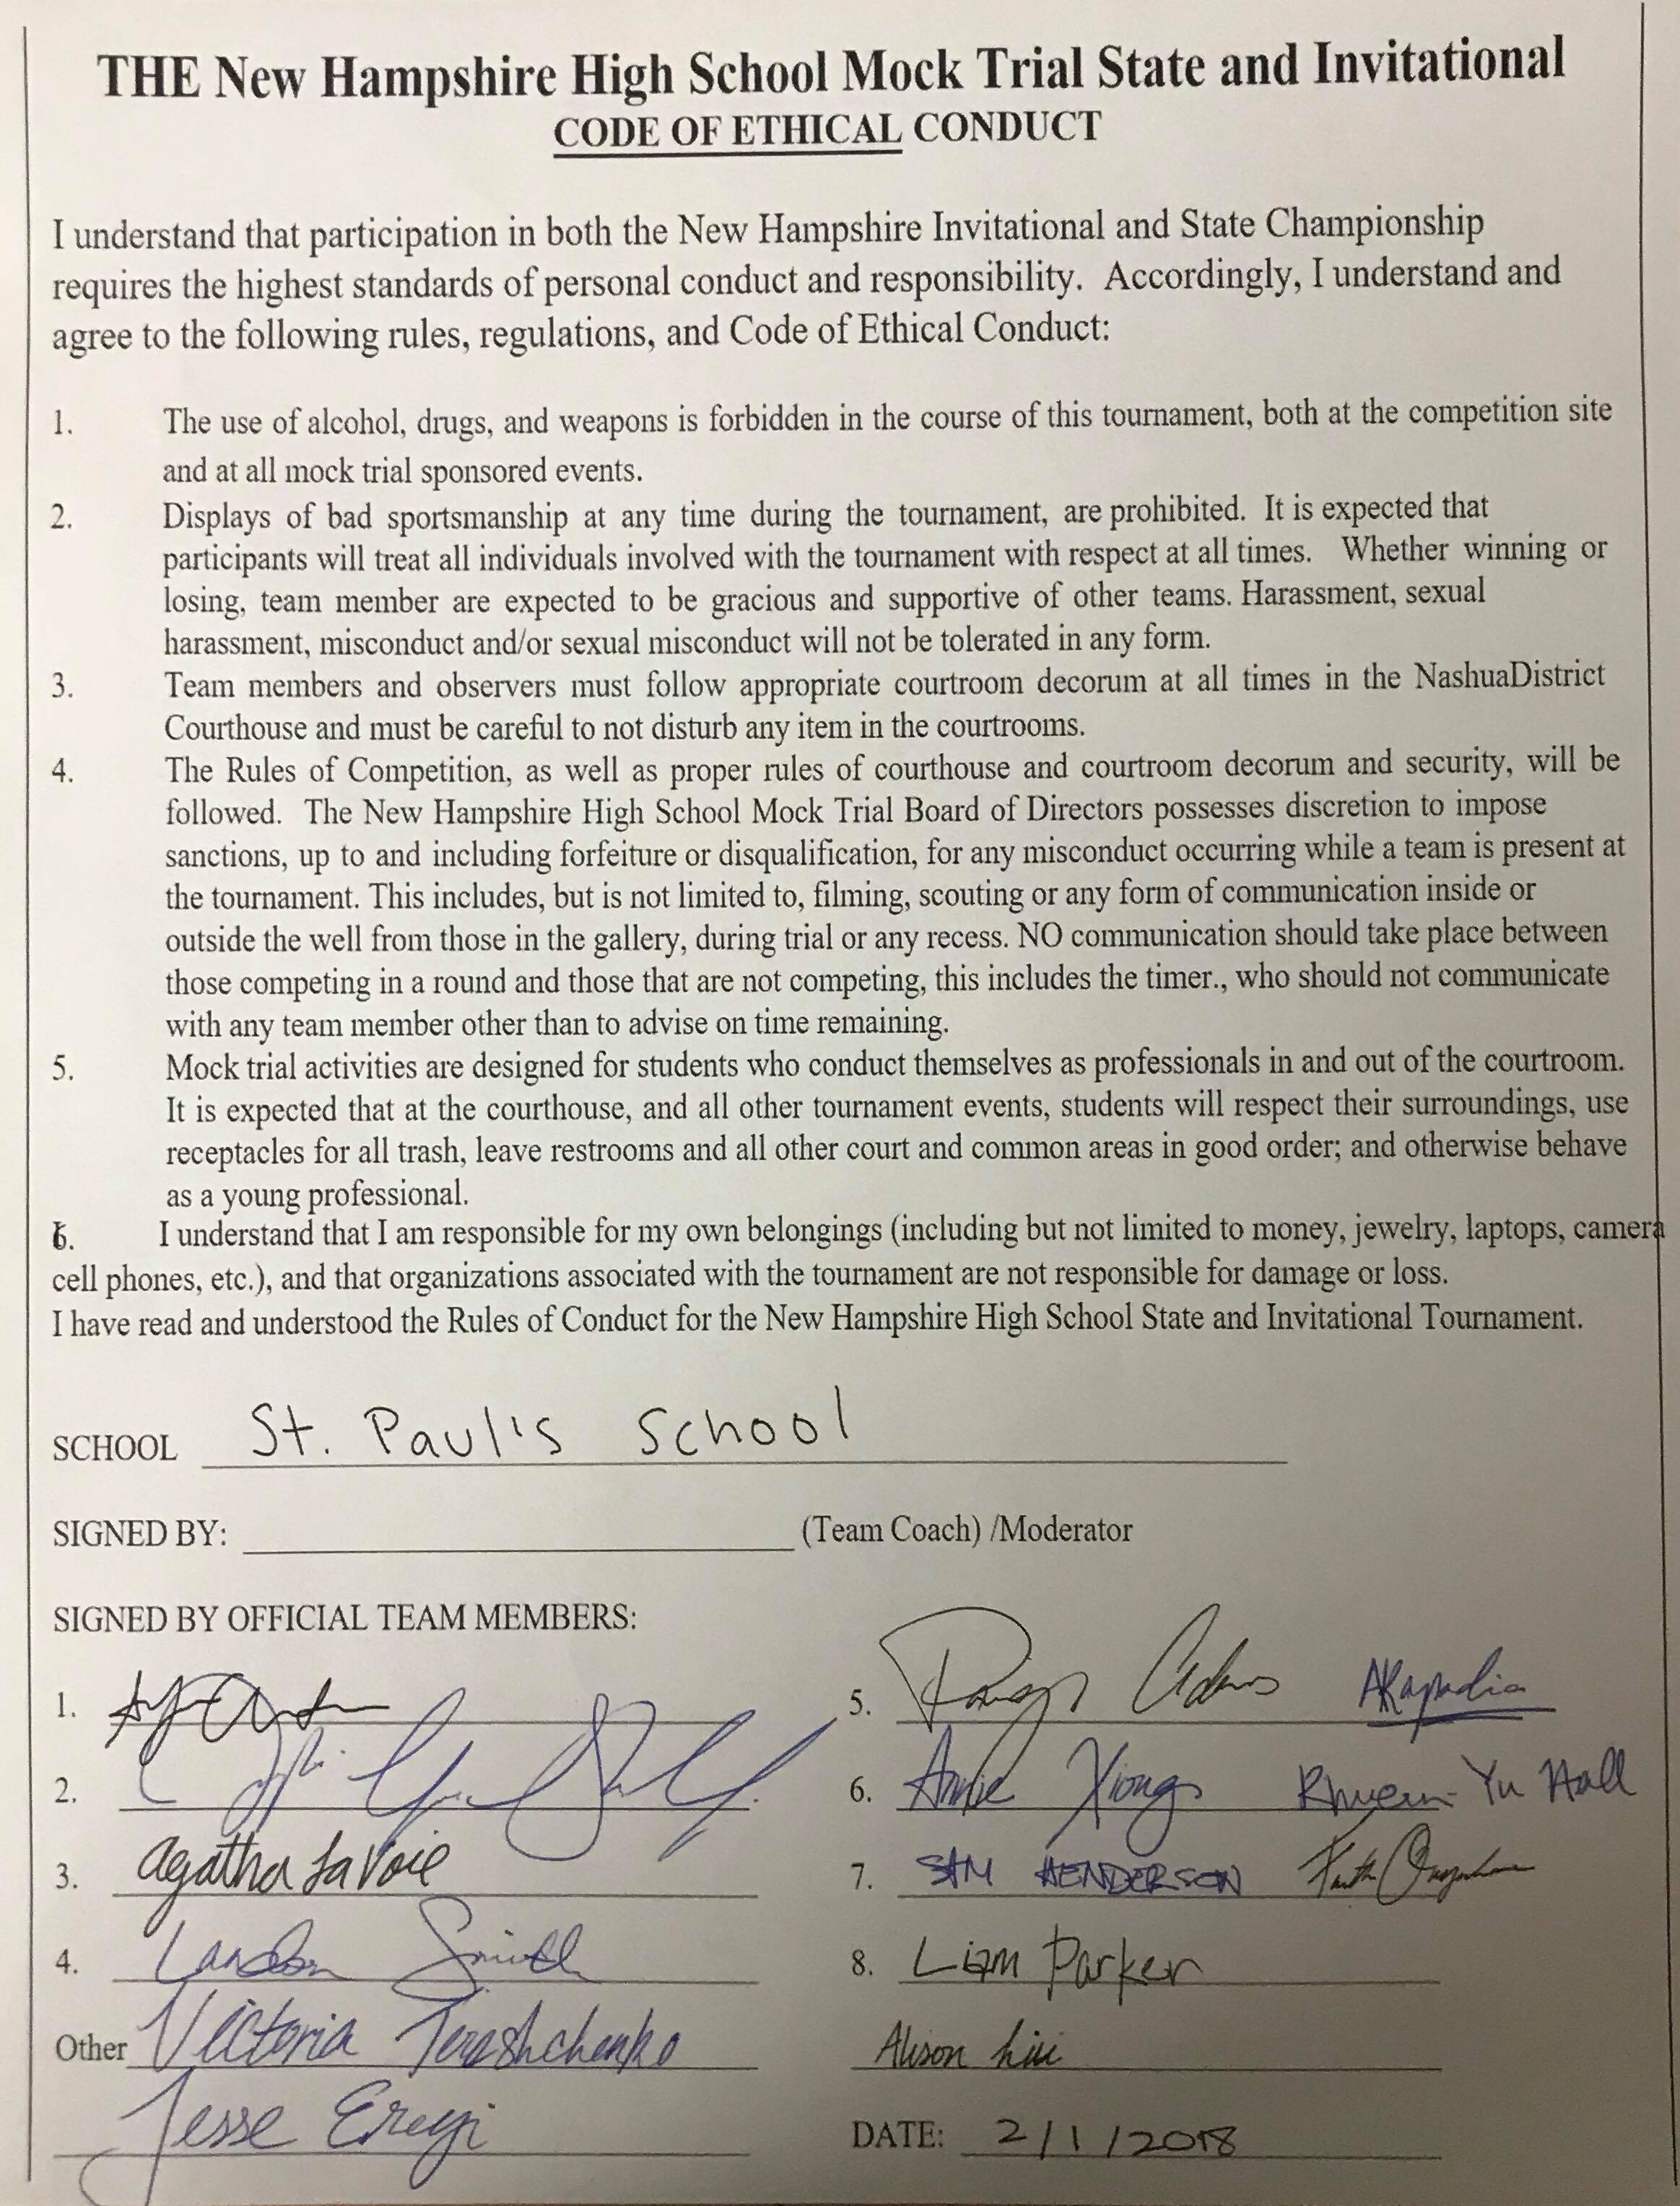 THE New Hampshire High School Mock Trial State and Invitational
CODE OF ETHICAL CONDUCT
I understand that participation in both the New Hampshire Invitational and State Championship
requires the highest standards of personal conduct and responsibility. Accordingly, I understand and
agree to the following rules, regulations, and Code of Ethical Conduct:
1. The use of alcohol, drugs, and weapons is forbidden in the course of this tournament, both at the competition site
and at all mock trial sponsored events.
2. Displays of bad sportsmanship at any time during the tournament, are prohibited. It is expected that
participants will treat all individuals involved with the tournament with respect at all times. Whether winning or
losing, team member are expected to be gracious and supportive of other teams. Harassment, sexual
harassment, misconduct and/or sexual misconduct will not be tolerated in any form.
3. Team members and observers must follow appropriate courtroom decorum at all times in the NashuaDistrict
Courthouse and must be careful to not disturb any item in the courtrooms.
4. The Rules of Competition, as well as proper rules of courthouse and courtroom decorum and security, will be
followed. The New Hampshire High School Mock Trial Board of Directors possesses discretion to impose
sanctions, up to and including forfeiture or disqualification, for any misconduct occurring while a team is present at
the tournament. This includes, but is not limited to, filming, scouting or any form of communication inside or
outside the well from those in the gallery, during trial or any recess. NO communication should take place between
those competing in a round and those that are not competing, this includes the timer., who should not communicate
with any team member other than to advise on time remaining.
5. Mock trial activities are designed for students who conduct themselves as professionals in and out of the courtroom.
It is expected that at the courthouse, and all other tournament events, students will respect their surroundings, use
receptacles for all trash, leave restrooms and all other court and common areas in good order; and otherwise behave
as a young professional.
6. I understand that I am responsible for my own belongings (including but not limited to money, jewelry, laptops, camera
cell phones, etc.), and that organizations associated with the tournament are not responsible for damage or loss.
I have read and understood the Rules of Conduct for the New Hampshire High School State and Invitational Tournament.
SCHOOL St. Paul's School
SIGNED BY: (Team Coach) /Moderator
SIGNED BY OFFICIAL TEAM MEMBERS:
1.
2.
3. Agatha LaVoie
4. Landon Smith
Other Victoria Tereshchenko
Jesse
5. AKapadia
6. Annie Xiong Yu Hall
7. SAM HENDERSON
8. Liam Parker
Alison
DATE: 2/1/2018